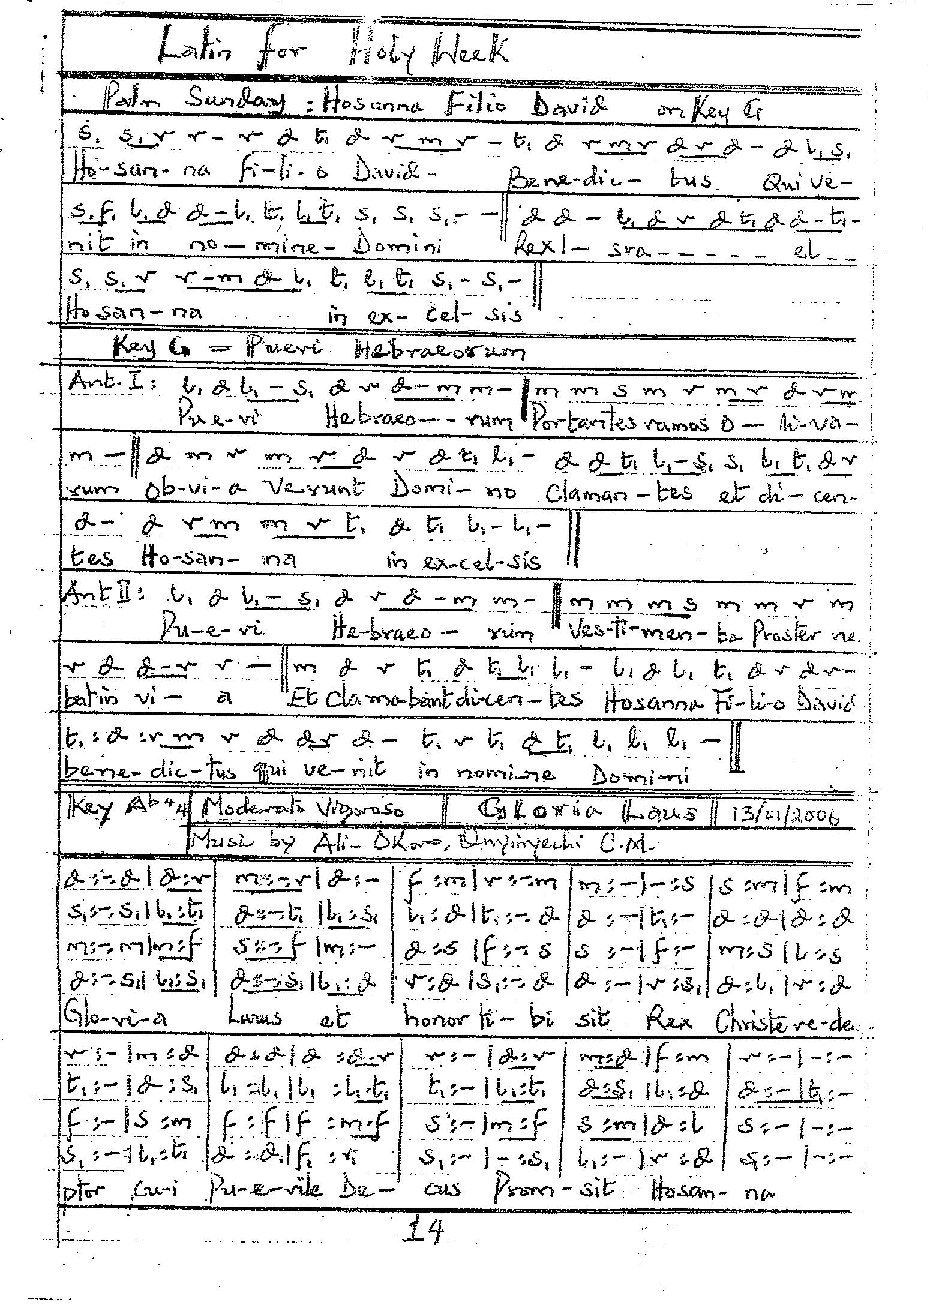 Latin for Holy Week
Palm Sunday : Hosanna Filio David on Key G
s, s, r r - r d t, d r m r - t, d r m r d r d - d l, s,
Ho-san-na fi-li-o David- Bene-dic- tus Qui ve-
s, f, l, d d - l, t, l, t, s, s, s, - - || d d - l, d r d t, d d - t, -
nit in no-mine- Domini Rex I- sra------ el--
s, s, r r - m d l, t, l, t, s, - s, - ||
Ho san-na in ex-cel-sis
Key G = Pueri Hebraeorum
Ant. I: l, d l, - s, d r d - m m - || m m s m r m r d r m
Pu e-ri Hebraeo--- rum Portantes ramos O- li-va-
m - || d m r m r d r d t, l, - d d t, l, - s, s, l, t, d r
rum Ob-vi-a Verunt Domi-no Claman-tes et di-cen-
d - d r m m r t, d t, l, - l, - ||
tes Ho-san-na in ex-cel-sis
Ant II: l, d l, - s, d r d - m m - || m m m s m m r m
Pu-e-ri He-braeo- rum Ves-ti-men-ta Proster ne
r d d - r r - || m d r t, d t, l, l, - l, d l, t, d r d r -
batin vi- a Et Clamabant dicen-tes Hosanna Fi-li-o David
t, : d : r m r d d r d - t, r t, d t, l, l, l, - ||
bene-dic-tus qui ve-nit in nomine Domini
Key Ab 4/4 Moderato Vigoroso || Gloria Laus || 13/01/2006
Music by Ali-Okoro, Onyinyechi C.M.
d :- d | d : r | m :- r | d :- | f : m | r :- m | m :- | - : s | s : m | f : m
s, :- s, | l, : t, | d :- t, | l, : s, | l, : d | t, :- d | d :- | t, :- | d : d | d : d
m :- m | m : f | s :- f | m :- | d : s | f :- s | s :- | f :- | m : s | l : s
d :- s, | l, : s, | d :- s, | l, : d | r : d | s, :- d | d :- | r : s, | d : l, | r : d
Glo-ri-a Laus et honor ti-bi sit Rex Christe re-de
r :- | m : d | d : d | d : d - r | r :- | d : r | m : d | f : m | r :- | - :-
t, :- | d : s, | l, : l, | l, : l, - t, | t, :- | l, : t, | d : s, | l, : d | d :- | t, :-
f :- | s : m | f : f | f : m - f | s :- | m : f | s : m | d : l | s :- | - :-
s, :- | l, : t, | d : d | f, : r, | s, :- | - : s, | l, :- | r : d | s, :- | - :-
ptor cu-i Pu-e-rile De- cus Prom-sit Hosan-na
14